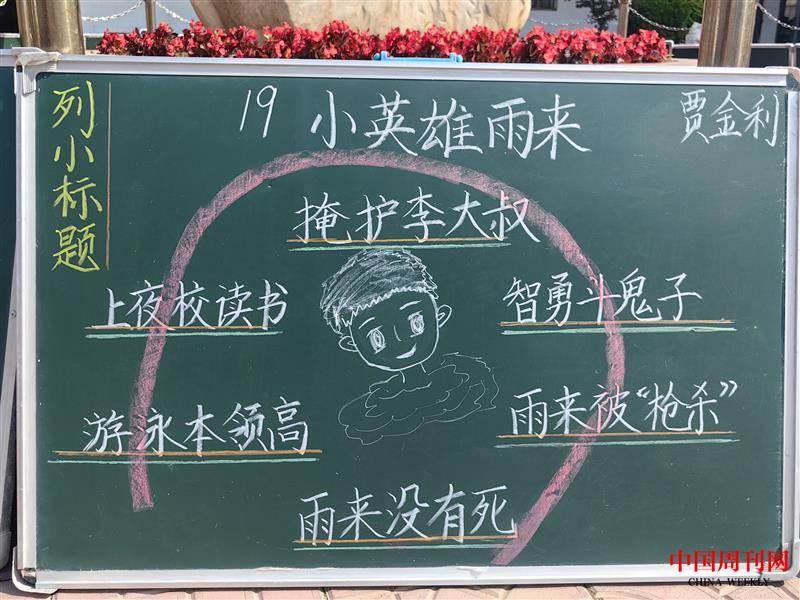 列小标题
19 小英雄雨来
贾金利
掩护李大叔
上夜校读书
智勇斗鬼子
游泳本领高
雨来被“枪杀”
雨来没有死
中国周刊网
CHINA WEEKLY